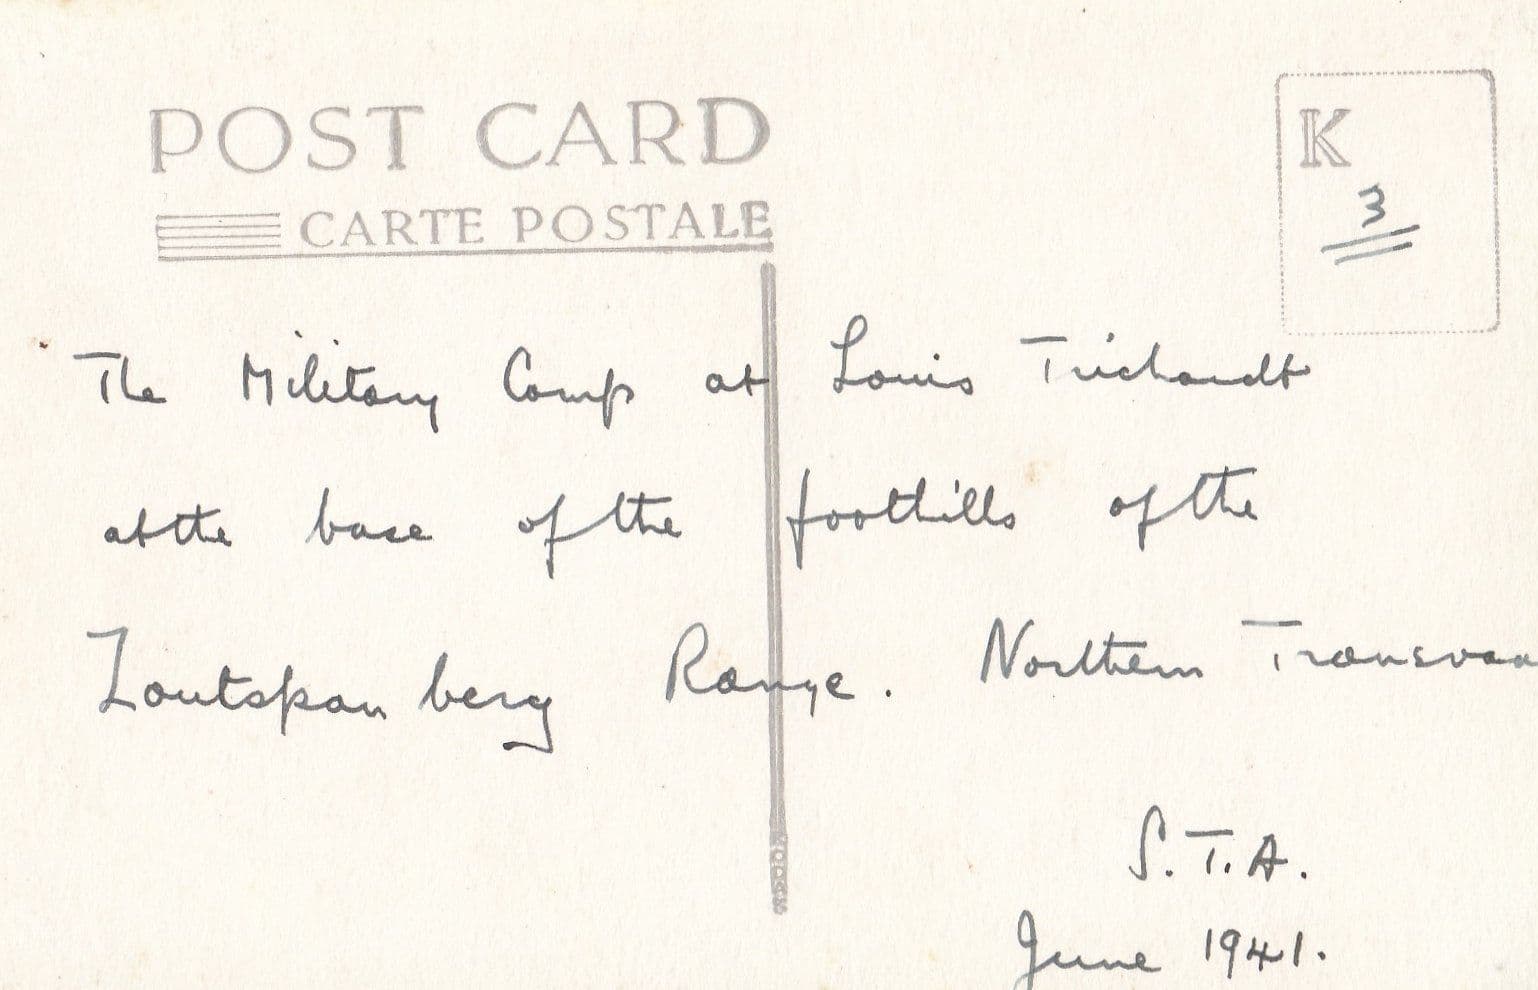 POST CARD
CARTE POSTALE
K
3
The Military Camp at Louis Trichardt
at the base of the foothills of the
Zoutspanberg Range. Northern Transvaa
S.T.A.
June 1941.